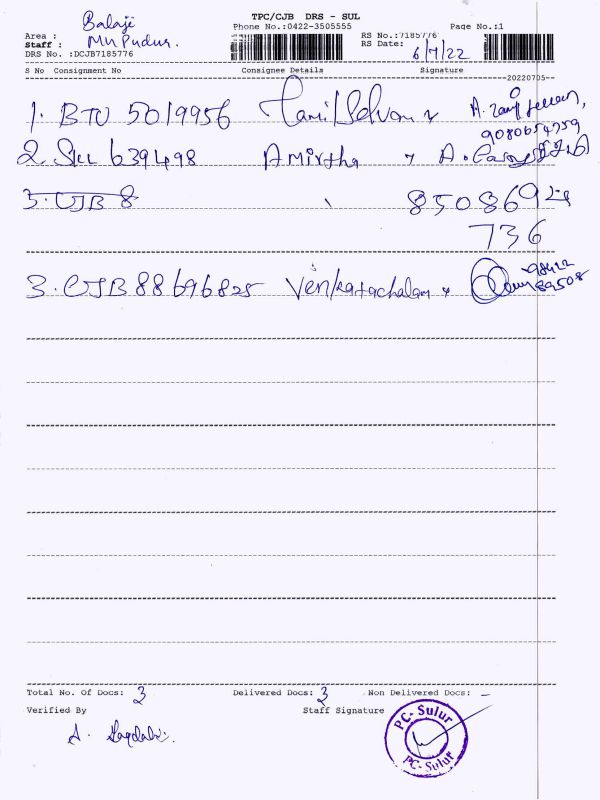 TPC/CJB DRS - SUL
Balaji
Phone No.:0422-3505555 Page No.:1
Area :
Staff : Mu Pudur. RS No.:7185776
RS Date: 6/7/22
DRS No. :DCJB7185776
S No Consignment No Consignee Details Signature
20220705
1. BTU 5019956 Tamil Selvam A.
9080654759
2. SLL 639498 Amirtha A.
3. CJB 8 85086924
736
3. CJB 88696825 Venkatachalam 98422
89508
Total No. Of Docs: 3 Delivered Docs: 3 Non Delivered Docs: -
Verified By Staff Signature
PC-Sulur
PC-Sulur
A.